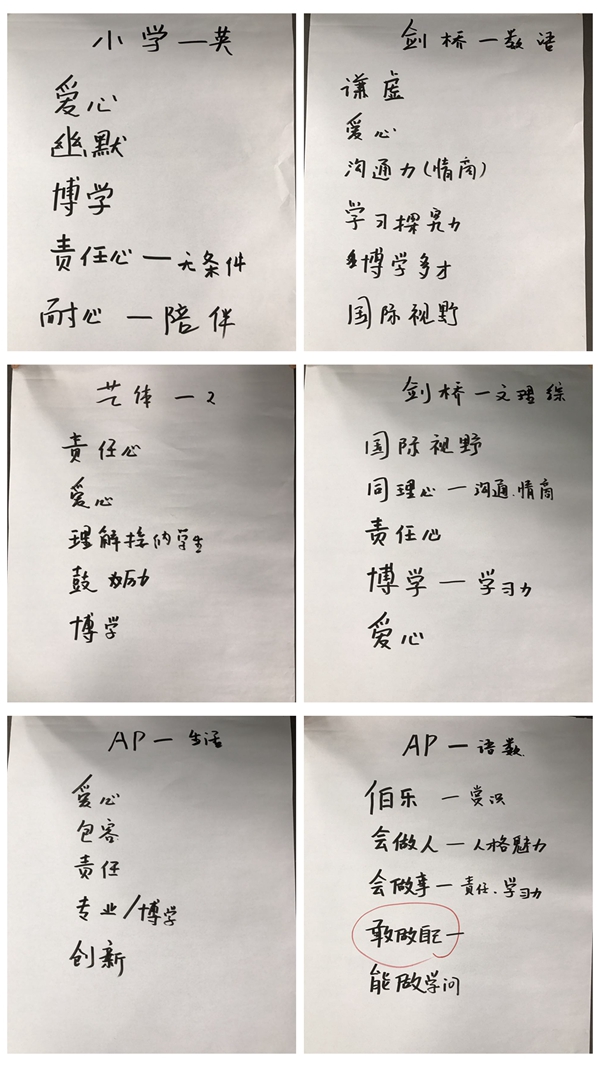 小学一英
爱心
幽默
博学
责任心一无条件
耐心一陪伴
剑桥一数语
谦虚
爱心
沟通力(情商)
学习探究力
博学多才
国际视野
艺体一2
责任心
爱心
理解接纳学生
鼓励
博学
剑桥一文理综
国际视野
同理心一沟通.情商
责任心
博学一学习力
爱心
AP一生活
爱心
包容
责任
专业/博学
创新
AP一语数
伯乐一赏识
会做人一人格魅力
会做事一责任.学习力
敢做自己一
能做学问